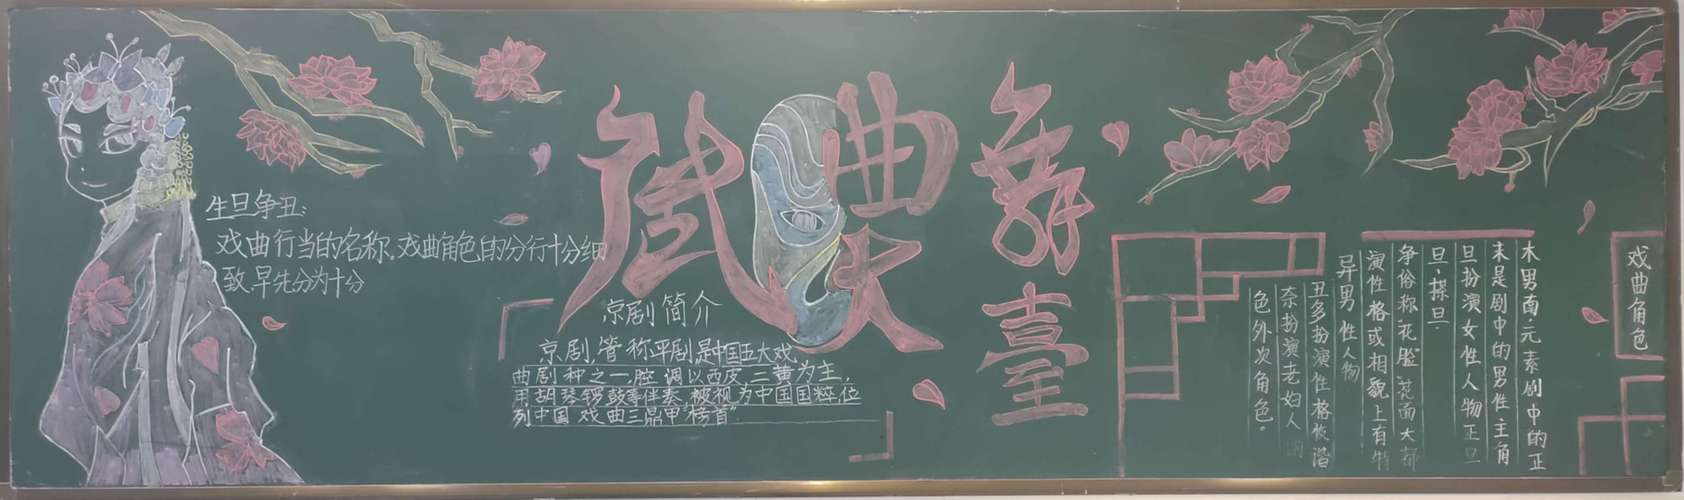 生旦争丑:
戏曲行当的名称.戏曲角色的分行十分细
致,早先分为十分
曲
舞
臺
京剧简介
京剧,皆称平剧,是中国五大戏
曲剧种之一,腔调以西皮、二黄为主,
用胡琴锣鼓等伴奏,被视为中国国粹,位
列中国戏曲三鼎甲"榜首"
戏曲角色
木男面.元素剧中的正
末是剧中的男性主角
旦扮演女性人物正旦
旦、揲旦.
争俗称花脸.花面大都
演性格或相貌上有特
异男性人物
丑多扮演性格诙谐
奈扮演老妇人
色外次角色。